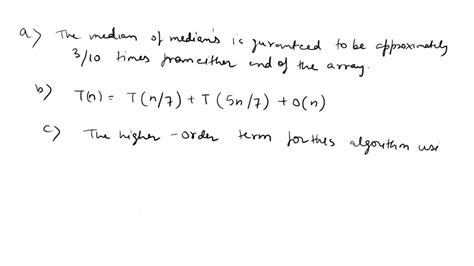 a) The median of median's is guranteed to be approximately
3/10 times from either end of the array.
b) T(n) = T(n/7) + T(5n/7) + O(n)
c) The higher-order term for this algorithm usi